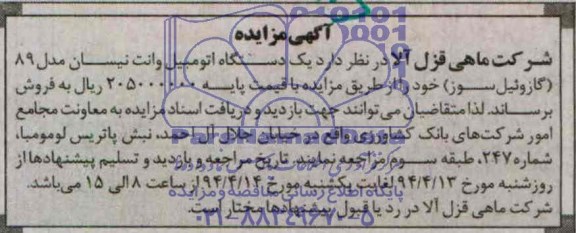 آگهی مزایده
شرکت ماهی قزل آلا در نظر دارد یک دستگاه اتومبیل وانت نیسان مدل ۸۹
(گازوئیل سوز) خود را از طریق مزایده با قیمت پایه ۲۰۵۰۰۰۰۰۰ ریال به فروش
برساند. لذا متقاضیان می توانند جهت بازدید و دریافت اسناد مزایده به معاونت مجامع
امور شرکت‌های بانک کشاورزی واقع در خیابان جلال آل احمد، نبش پاتریس لومومبا،
شماره ۲۴۷، طبقه سوم مراجعه نمایند. تاریخ مراجعه و بازدید و تسلیم پیشنهادها از
روز شنبه مورخ ۹۴/۴/۱۳ لغایت یکشنبه مورخ ۹۴/۴/۱۴ از ساعت ۸ الی ۱۵ می‌باشد.
پایگاه اطلاع رسانی مناقصه و مزایده
شرکت ماهی قزل آلا در رد یا قبول پیشنهادها مختار است.
۰۲۱-۸۸۳۴۹۶۷۰-۵